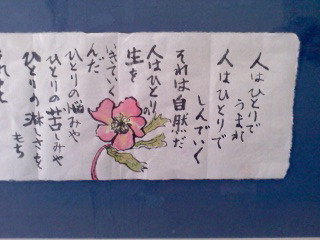 人はひとりで
うまれ
人はひとりで
しんでいく
それは自然だ
人はひとりの
生を
いきていく
んだ
ひとりの悩みや
ひとりの苦しみや
ひとりの淋しさを
もち